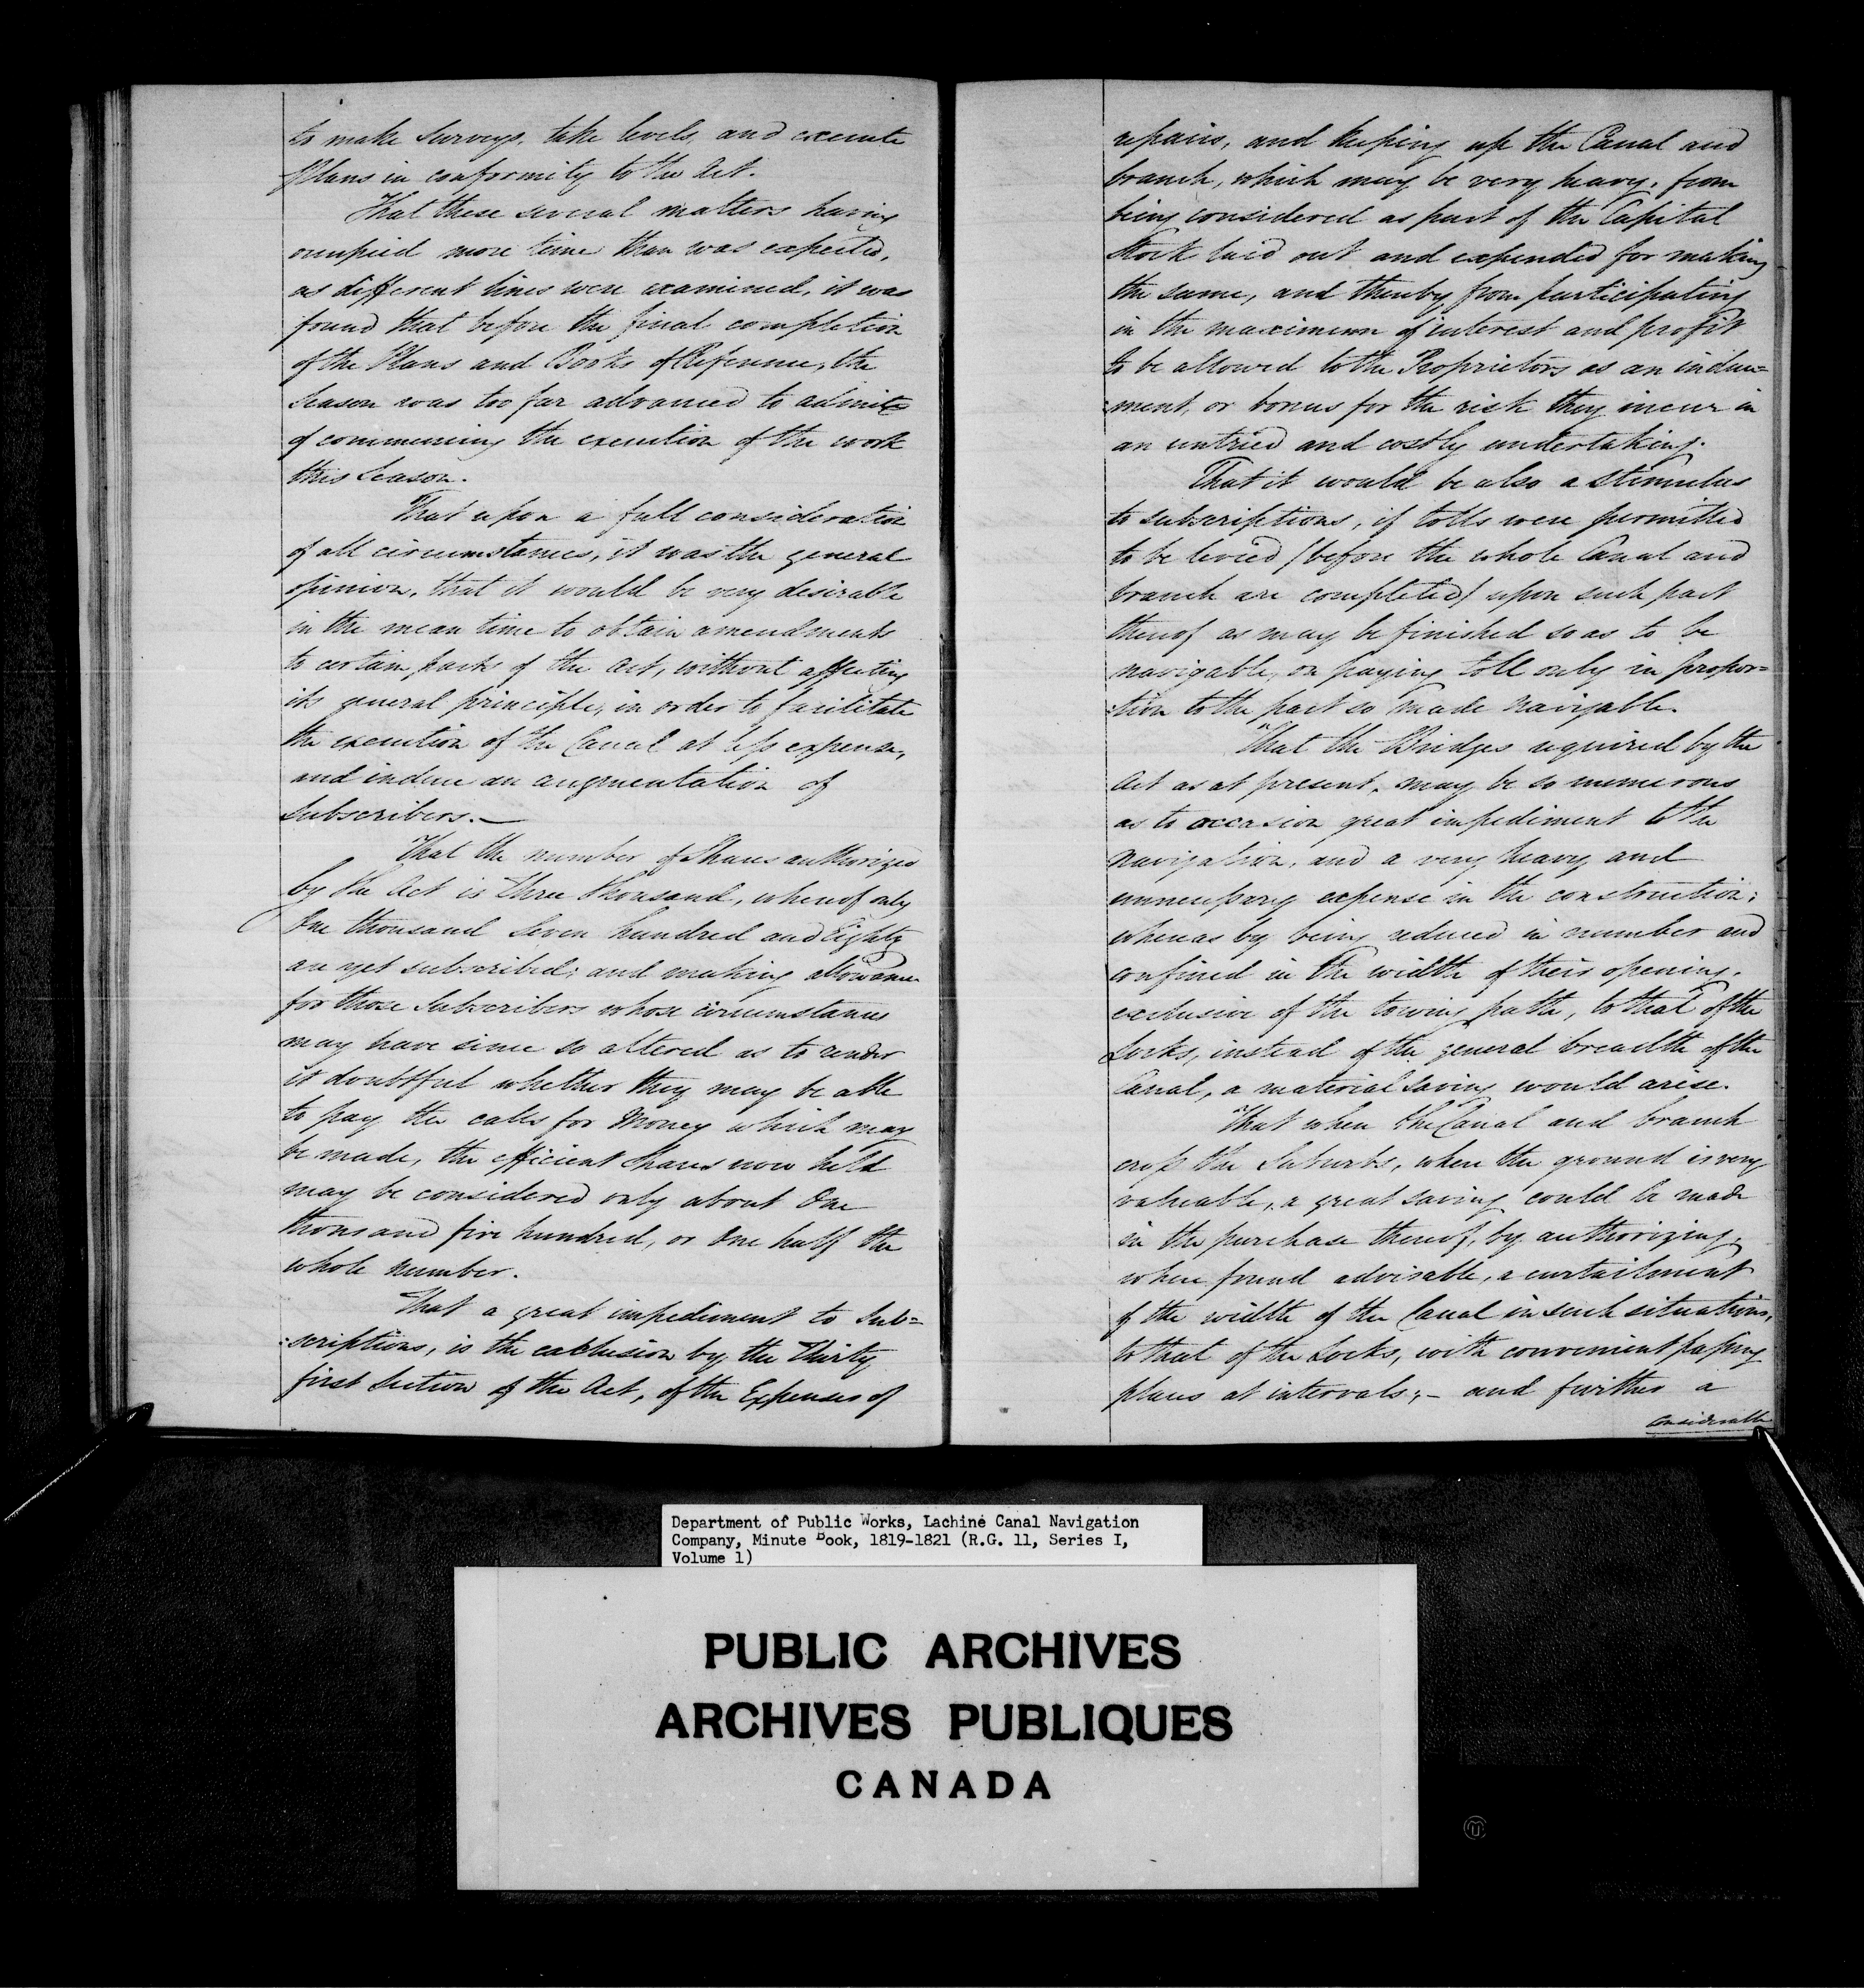 to make surveys, take levels, and execute
Plans in conformity to the Act.
That these several matters having
occupied more time than was expected,
as different lines were examined, it was
found that before the final completion
of the Plans and Books of Reference, the
Season was too far advanced to admit
of commencing the execution of the work
this Season.
That upon a full consideration
of all circumstances, it was the general
opinion, that it would be very desirable
in the mean time to obtain amendments
to certain parts of the Act, without affecting
its general principle, in order to facilitate
the execution of the Canal at less expense,
and induce an augmentation of
Subscribers.—
That the number of Shares authorized
by the Act is Three thousand, whereof only
One thousand Seven hundred and Eighty
are yet subscribed; and making allowance
for those Subscribers whose circumstances
may have since so altered as to render
it doubtful whether they may be able
to pay the calls for Money which may
be made, the efficient shares now held
may be considered only about One
thousand five hundred, or One half the
whole number.
That a great impediment to Sub=
:scriptions, is the exclusion by the Thirty
first Section of the Act, of the Expenses of
repairs, and keeping up the Canal and
branch, which may be very heavy, from
being considered as part of the Capital
Stock laid out and expended for making
the same, and thereby from participating
in the maximum of interest and profit
to be allowed to the Proprietors as an induce=
:ment, or bonus for the risk they incur in
an untried and costly undertaking.
That it would be also a stimulus
to subscriptions, if tolls were permitted
to be levied /before the whole Canal and
branch are completed/ upon such part
thereof as may be finished so as to be
navigable, on paying toll only in propor=
:tion to the part so made navigable.
That the Bridges required by the
Act as at present, may be so numerous
as to occasion great impediment to the
navigation, and a very heavy and
unnecessary expense in the construction;
whereas by being reduced in number and
confined in the width of their opening,
exclusive of the towing path, to that of the
Locks, instead of the general breadth of the
Canal, a material saving would arise.
That when the Canal and branch
cross the Suburbs, where the ground is very
valuable, a great saving could be made
in the purchase thereof, by authorizing,
where found advisable, a curtailment
of the width of the Canal in such situations,
to that of the Locks, with convenient passing
places at intervals;— and further a
Considerable
Department of Public Works, Lachine Canal Navigation
Company, Minute Book, 1819-1821 (R.G. 11, Series I,
Volume 1)
PUBLIC ARCHIVES
ARCHIVES PUBLIQUES
CANADA